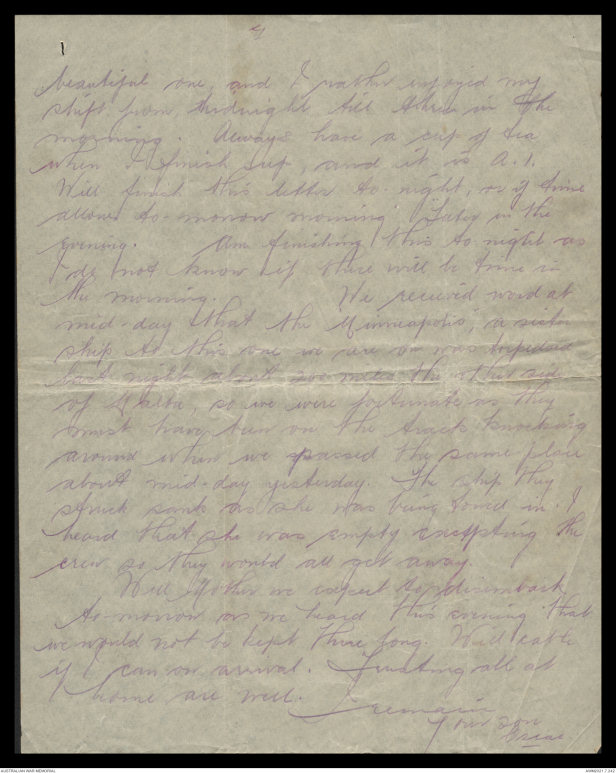 4
beautiful one, and I rather enjoyed my
shift from midnight till three in the
morning. Always have a cup of tea
when I finish up, and it is A.1.
Will finish this letter to-night, or if time
allows to-morrow morning. Later in the
evening. Am finishing this to-night as
I do not know if there will be time in
the morning. We received word at
mid-day that the "Minneapolis", a sister
ship to this one we are on was torpedoed
last night about miles the other side
of Malta, so we were fortunate as they
must have been on the track knocking
around when we passed the same place
about mid-day yesterday. The ship they
struck sank as she was being towed in. I
heard that she was empty excepting the
crew so they would all get away.
Well Mother we expect to disembark
to-morrow as we heard this evening that
we would not be kept there long. Will cable
if I can on arrival. Trusting all at
home are well.
I remain
Your son
AUSTRALIAN WAR MEMORIAL